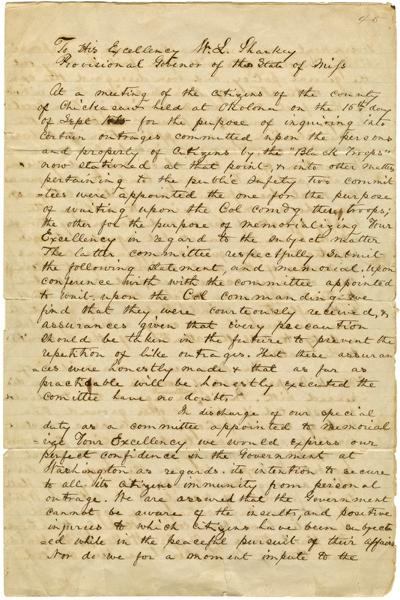 To His Excellency W. L. Sharkey
Provisional Govenor of the State of Miss
At a meeting of the citizens of the county
of Chickasaw held at Okolona on the 16th day
of Sept for the purpose of inquiring into
certain outrages committed upon the persons
and property of Citizens by the "Black Troops"
now stationed at that point, & into other matters
pertaining to the public Safety two commit-
-tees were appointed the one for the purpose
of waiting upon the Col comdg these troops;
the other for the purpose of memorializing Your
Excellency in regard to the subject matter
The latter committee respectfully Submit
the following statement, and memorial. Upon
conference with with the committee appointed
to wait upon the Col Commanding we
find that they were courteously received, &
assurances given that every precaution
should be taken in the future to prevent the
repetition of like outrages. That these assuran
-ces were honestly made & that as far as
practicable will be honestly executed the
comittee have no doubt
In discharge of our special
duty as a committee appointed to memorial
-ize Your Excellency we would express our
perfect confidence in the Government at
Washington as regards its intention to secure
to all its citizens immunity from personal
outrage. We are assured that the Government
cannot be aware of the insults, and positive
injuries to which citizens have been subject
-ed while in the peaceful pursuit of their affairs
Nor do we for a moment impute to the